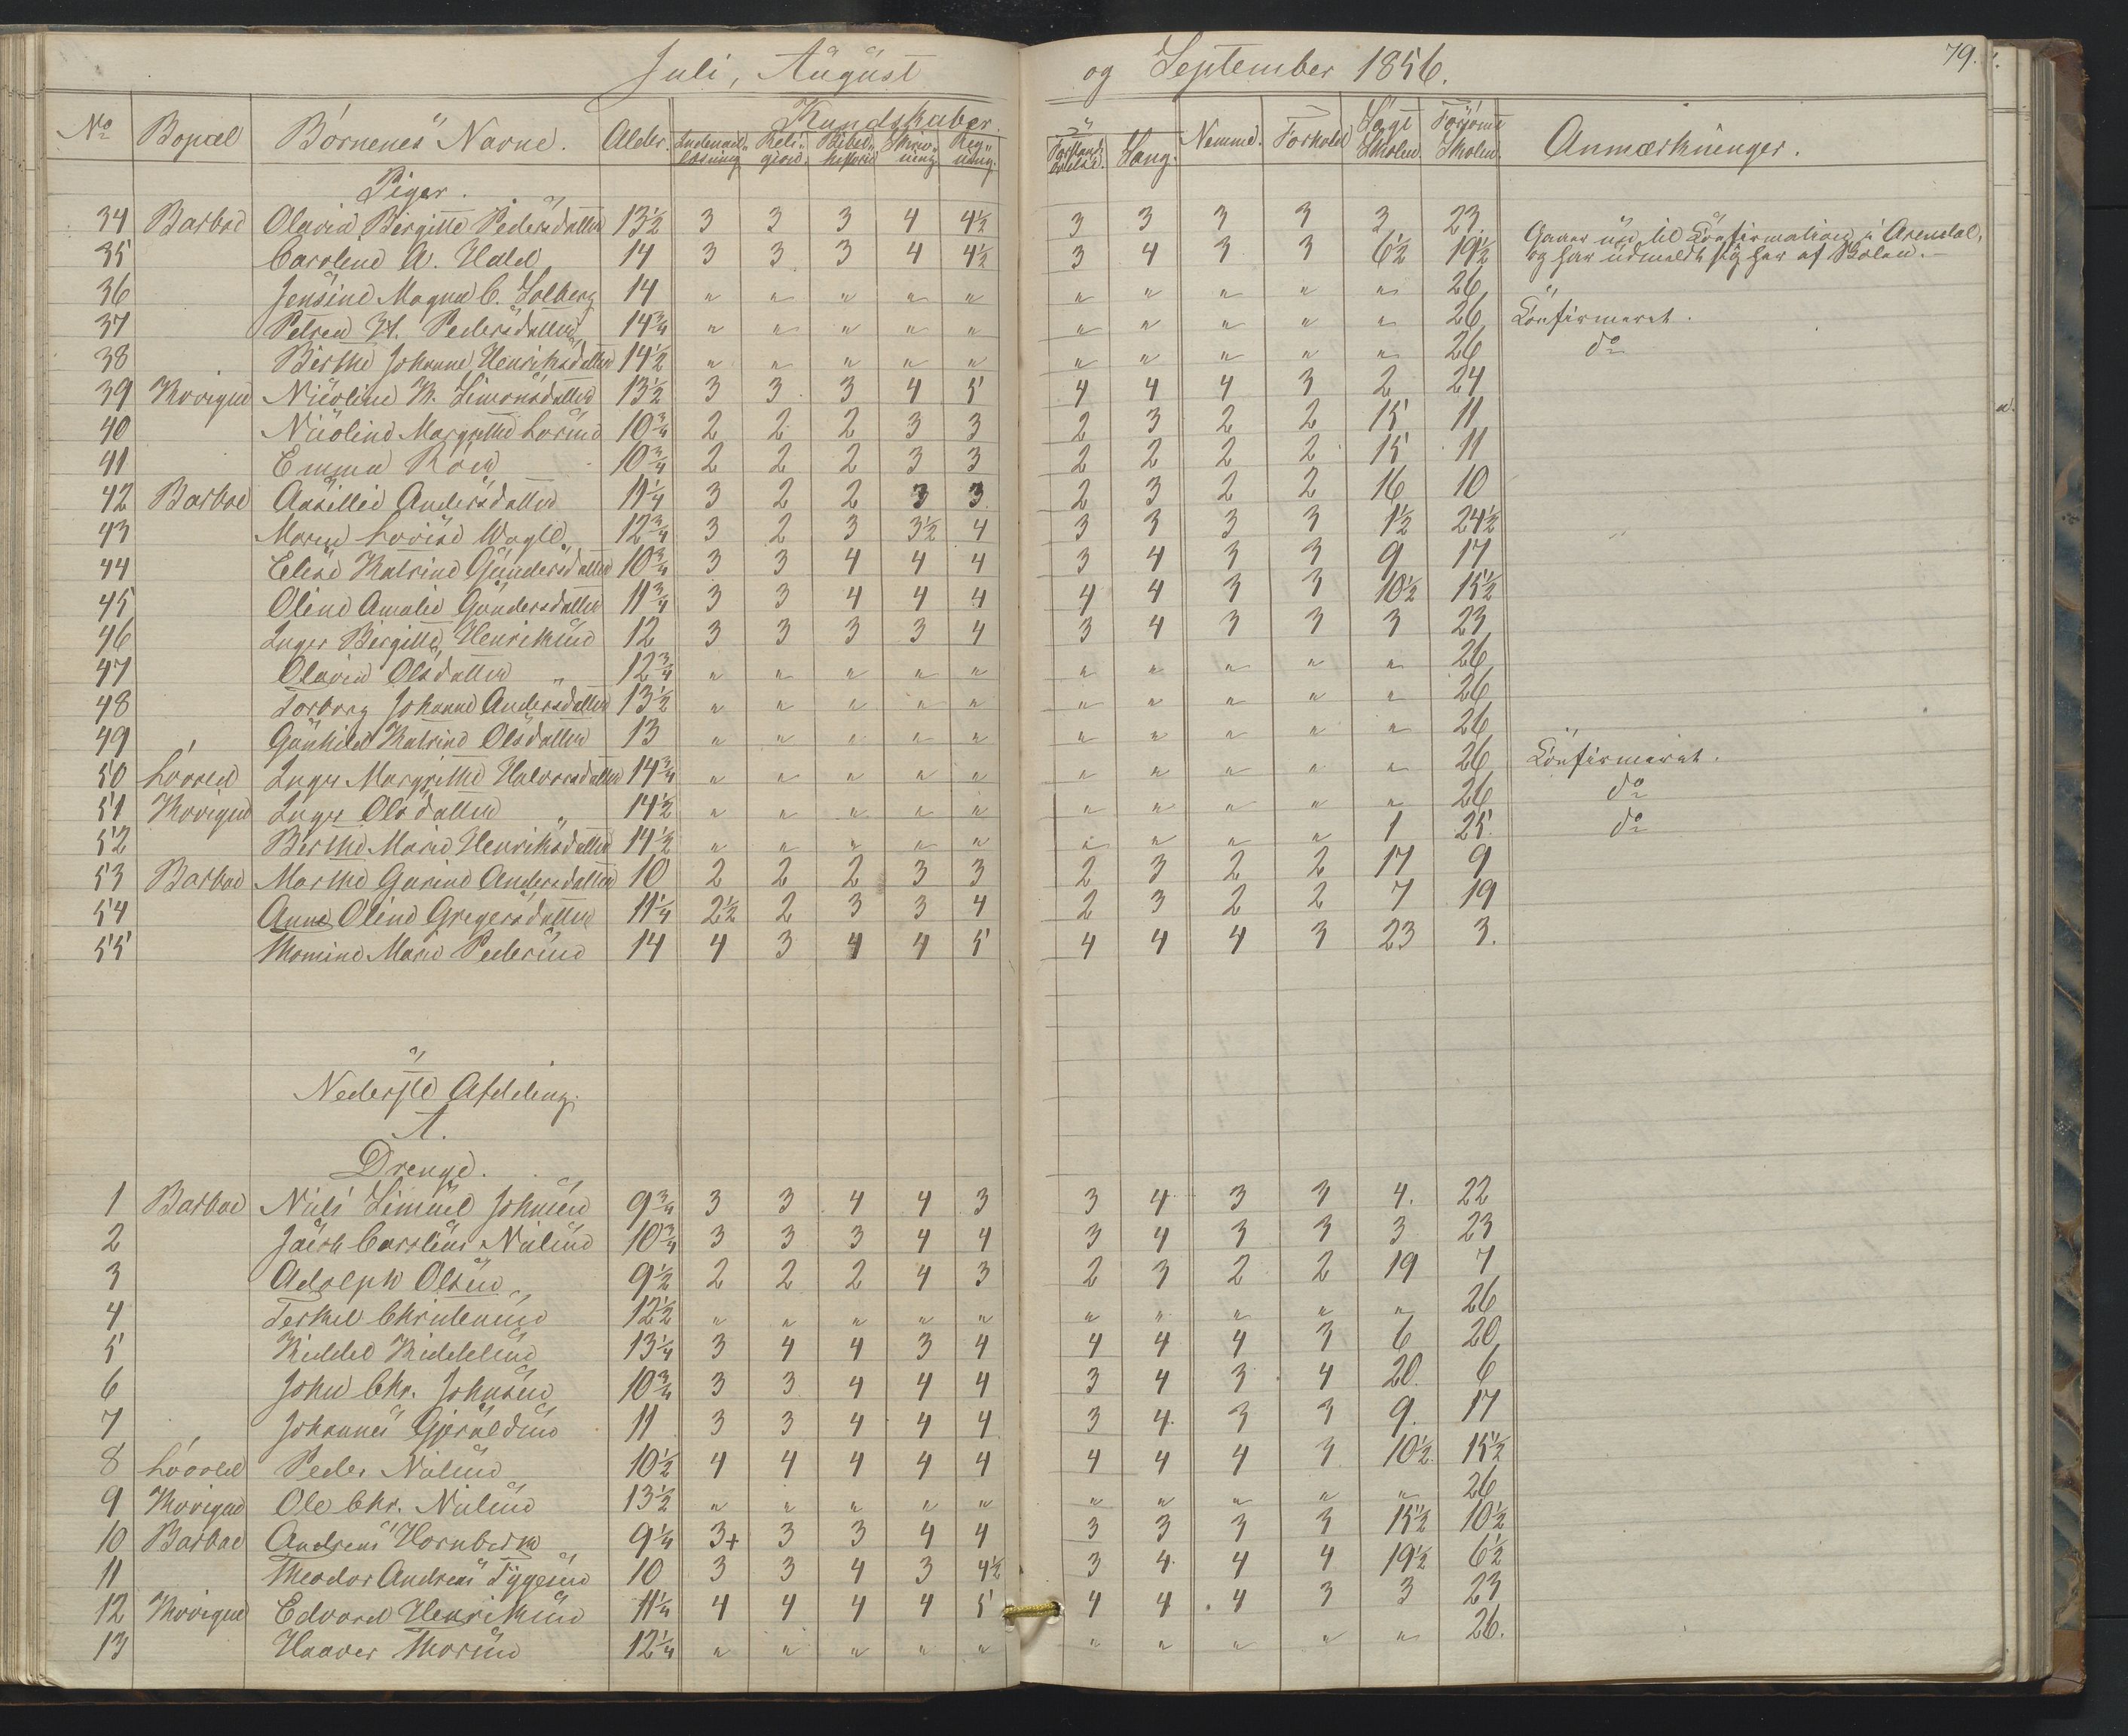 Juli, August og September 1856. 79.
No Bopæl Børnenes Navne. Alder. Kundskaber. Nemme. Forhold Søgt Skolen. Forsømt Skolen. Anmærkninger.
Indenad-læsning Reli-gion Bibel-historie Skriv-ning Reg-ning. Forstands-øvelse. Sang.
Piger.
34 Barboe Olavia Birgitte Pedersdatter 13½ 3 3 3 4 4½ 3 3 3 3 3 23. Gaaer ud til Confirmation i Arendal,
35 Caroline A. Hald 14 3 3 3 4 4½ 3 4 3 3 6½ 19½ og har udmeldt sig her af Skolen.
36 Jensine Magna C. Solberg 14 " " " " " " " " " " 26
37 Petrea H. Pedersdatter 14¾ " " " " " " " " " " 26 Confirmeret.
38 Birthe Johanne Henriksdatter 14½ " " " " " " " " " " 26 do
39 Nicoline M. Simonsdatter 13½ 3 3 3 4 5 4 4 4 3 2 24
40 Nicoline Margrethe 10¾ 2 2 2 3 3 2 3 2 2 15 11
41 Emma 10¾ 2 2 2 3 3 2 2 2 2 15 11
42 Barboe Aasillie Andersdatter 11¼ 3 2 2 3 3 2 3 2 2 16 10
43 Maren Lovise Wagle 12¾ 3 2 3 3½ 4 3 3 3 3 1½ 24½
44 Elise Katrine Gundersdatter 10¾ 3 3 4 4 4 3 4 3 3 9 17
45 Oline Amalie Gundersdatter 11¾ 3 3 4 4 4 4 4 3 3 10½ 15½
46 Inger Birgitte Henriksen 12 3 3 3 3 4 3 4 3 3 3 23
47 Olavia Olsdatter 12¾ " " " " " " " " " " 26
48 Torborg Johanne Andersdatter 13½ " " " " " " " " " " 26
49 Gunhild Katrine Olsdatter 13 " " " " " " " " " " 26
50 Inger Margrethe Halvorsdatter 14¾ " " " " " " " " " " 26 Confirmeret.
51 Inger Olsdatter 14½ " " " " " " " " " " 26 do
52 Berthe Marie Henriksdatter 14½ " " " " " " " " " 1 25. do
53 Barboe Marthe Gurine Andersdatter 10 2 2 2 3 3 2 3 2 2 17 9
54 Anne Oline Gregersdatter 11¼ 2½ 2 3 3 4 2 3 2 2 7 19
55 Thomine Marie Pedersen 14 4 3 4 4 5 4 4 4 3 23 3.
Nederste Afdeling.
A.
Drenge.
1 Barboe Niels Simuel Johnsen 9¾ 3 3 4 4 3 3 4 3 3 4. 22
2 Jacob Carolius Nielsen 10¾ 3 3 3 4 4 3 4 3 3 3 23
3 Adolph Olsen 9½ 2 2 2 4 3 2 3 2 2 19 7
4 Terkel Christensen 12½ " " " " " " " " " " 26
5 13¼ 3 4 4 3 4 4 4 4 3 6 20
6 John Chr. Johnsen 10¾ 3 3 4 4 4 3 4 3 4 20. 6
7 Johannes Gjeruldsen 11 3 3 4 4 4 3 4. 3 3 9. 17
8 Peder Nielsen 10½ 4 4 4 4 4 4 4 4 3 10½ 15½
9 Ole Chr. Nielsen 13½ " " " " " " " " " " 26
10 Barboe Andreas Hornbech 9¼ 3+ 3 3 4 4 3 3 3 3 15½ 10½
11 Theodor Andreas Tygesen 10 3 3 4 3 4½ 3 4. 4 4 19½ 6½
12 Edvard Henriksen 11¼ 4 4 4 4 5 4 4. 4 3 3 23
13 Haaver Thorsen 12¼ " " " " " " " " " " 26.